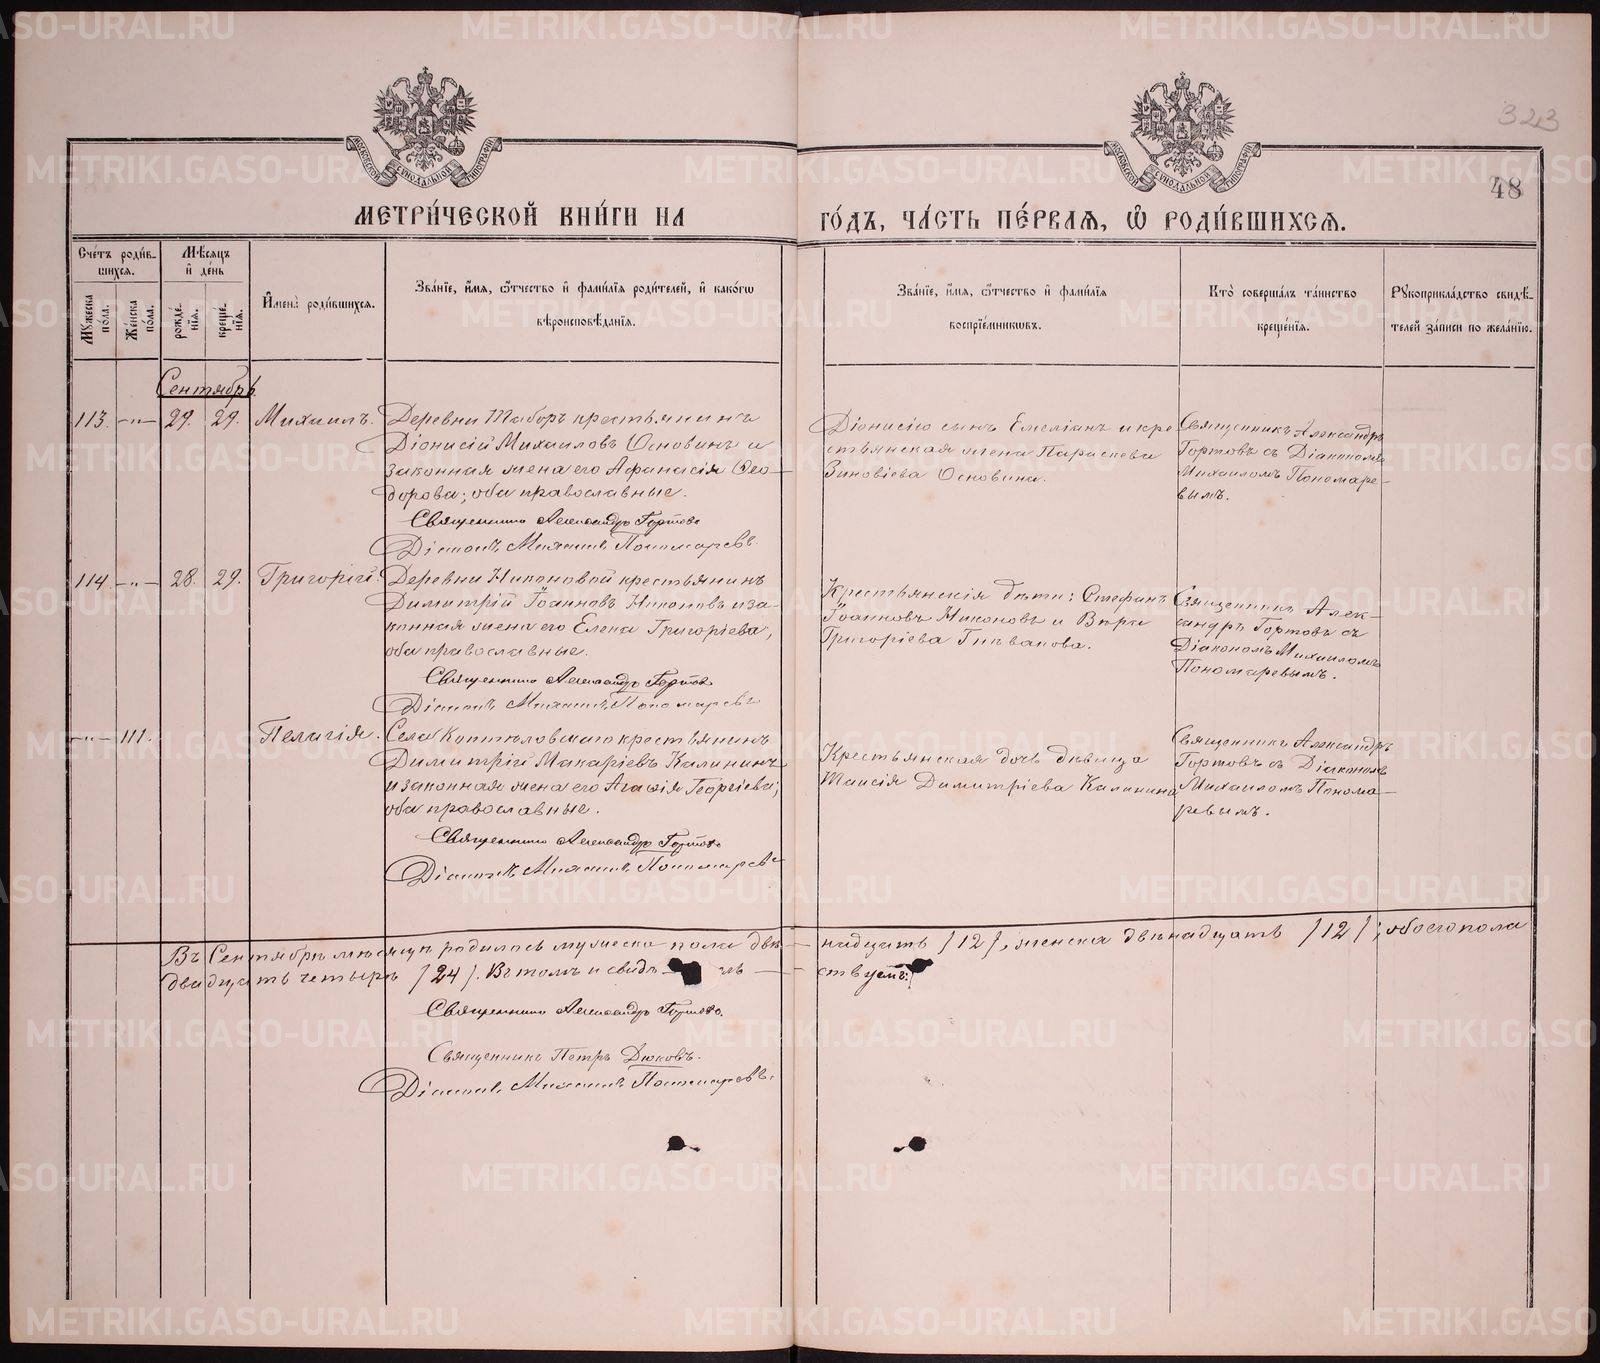 323
48
МОСКОВСКОЙ СѴНОДАЛЬНОЙ ТИПОГРАФІИ
МОСКОВСКОЙ СѴНОДАЛЬНОЙ ТИПОГРАФІИ
МЕТРИ́ЧЕСКОЙ КНИ́ГИ НА ГО́ДЪ, ЧА́СТЬ ПЕ́РВАЯ, Ѡ҆ РОДИ́ВШИХСЯ.
Сче́тъ роди́в-
шихся.
Мѣ́сяцъ
и҆ де́нь
Мꙋ́жеска
по́ла.
Же́нска
по́ла.
рожде́-
нїя.
креще́-
нїя.
И҆мена̀ роди́вшихся.
Зва́нїе, и҆́мя, ѻ҆́тчество и҆ фами́лїя роди́телей, и҆ како́гѡ
вѣроисповѣ́данїя.
Зва́нїе, и҆́мя, ѻ҆́тчество и҆ фами́лїя
воспрїе́мникѡвъ.
Кто̀ соверша́лъ та́инство
креще́нїя.
Рꙋкоприкла́дство свидѣ́-
телей за́писи по жела́нїю.
Сентябрь
113. —„— 29. 29. Михаилъ.
Деревни Таборъ крестьянинъ
Діонисій Михаиловъ Основинъ и
законная жена его Афанасія Ѳео-
дорова; оба православные.
Священникъ Александръ Гортовъ
Діаконъ Михаилъ Пономаревъ.
Діонисію сынъ Емеліанъ и кре-
стьянская жена Параскева
Зиновіева Основина.
Священникъ Александръ
Гортовъ съ Діакономъ
Михаиломъ Пономаре-
вымъ.
114. —„— 28. 29. Григорій.
Деревни Никоновой крестьянинъ
Димитрій Іоанновъ Никоновъ и за-
конная жена его Елена Григоріева,
оба православные.
Священникъ Александръ Гортовъ
Діаконъ Михаилъ Пономаревъ
Крестьянскія дѣти: Стефанъ
Іоанновъ Никоновъ и Вѣра
Григоріева Гнѣвакова.
Священникъ Алек-
сандръ Гортовъ съ
Діакономъ Михаиломъ
Пономаревымъ.
—„— 111. Пелагія.
Села Коптѣловскаго крестьянинъ
Димитрій Макаріевъ Калининъ
и законная жена его Агафія Георгіева;
оба православные.
Священникъ Александръ Гортовъ
Діаконъ Михаилъ Пономаревъ
Крестьянская дочь дѣвица
Таисія Димитріева Калинина
Священникъ Александръ
Гортовъ съ Діакономъ
Михаиломъ Понома-
ревымъ.
Въ Сентябрѣ мѣсяцѣ родилось мужеска пола двѣ— надцать /12/, женска двѣнадцать /12/; обоего пола
двадцать четыре /24/. Въ томъ и свидѣ— тель— ствуемъ:
Священникъ Александръ Гортовъ.
Священникъ Петръ Дюковъ.
Діаконъ Михаилъ Пономаревъ.